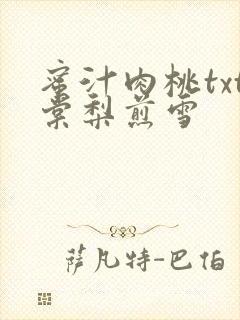 蜜汁肉桃txt
棠梨煎雪
萨凡特-巴伯